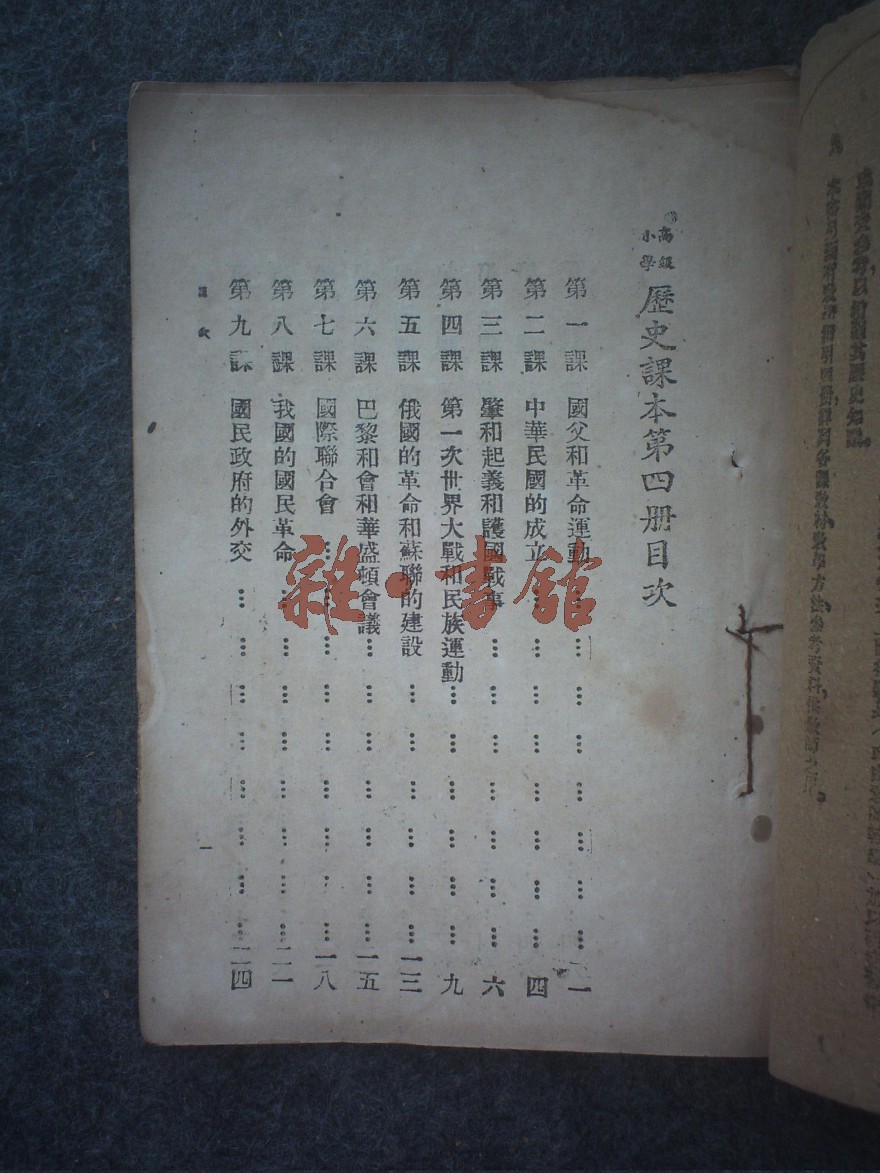 高級
小學
歷史課本第四册目次
第一課 國父和革命運動………………………一
第二課 中華民國的成立………………………四
第三課 肇和起義和護國戰事………………………六
第四課 第一次世界大戰和民族運動………………………九
第五課 俄國的革命和蘇聯的建設………………………一三
第六課 巴黎和會和華盛頓會議………………………一五
第七課 國際聯合會………………………一八
第八課 我國的國民革命………………………二一
第九課 國民政府的外交………………………二四
目次
一
雜·書館